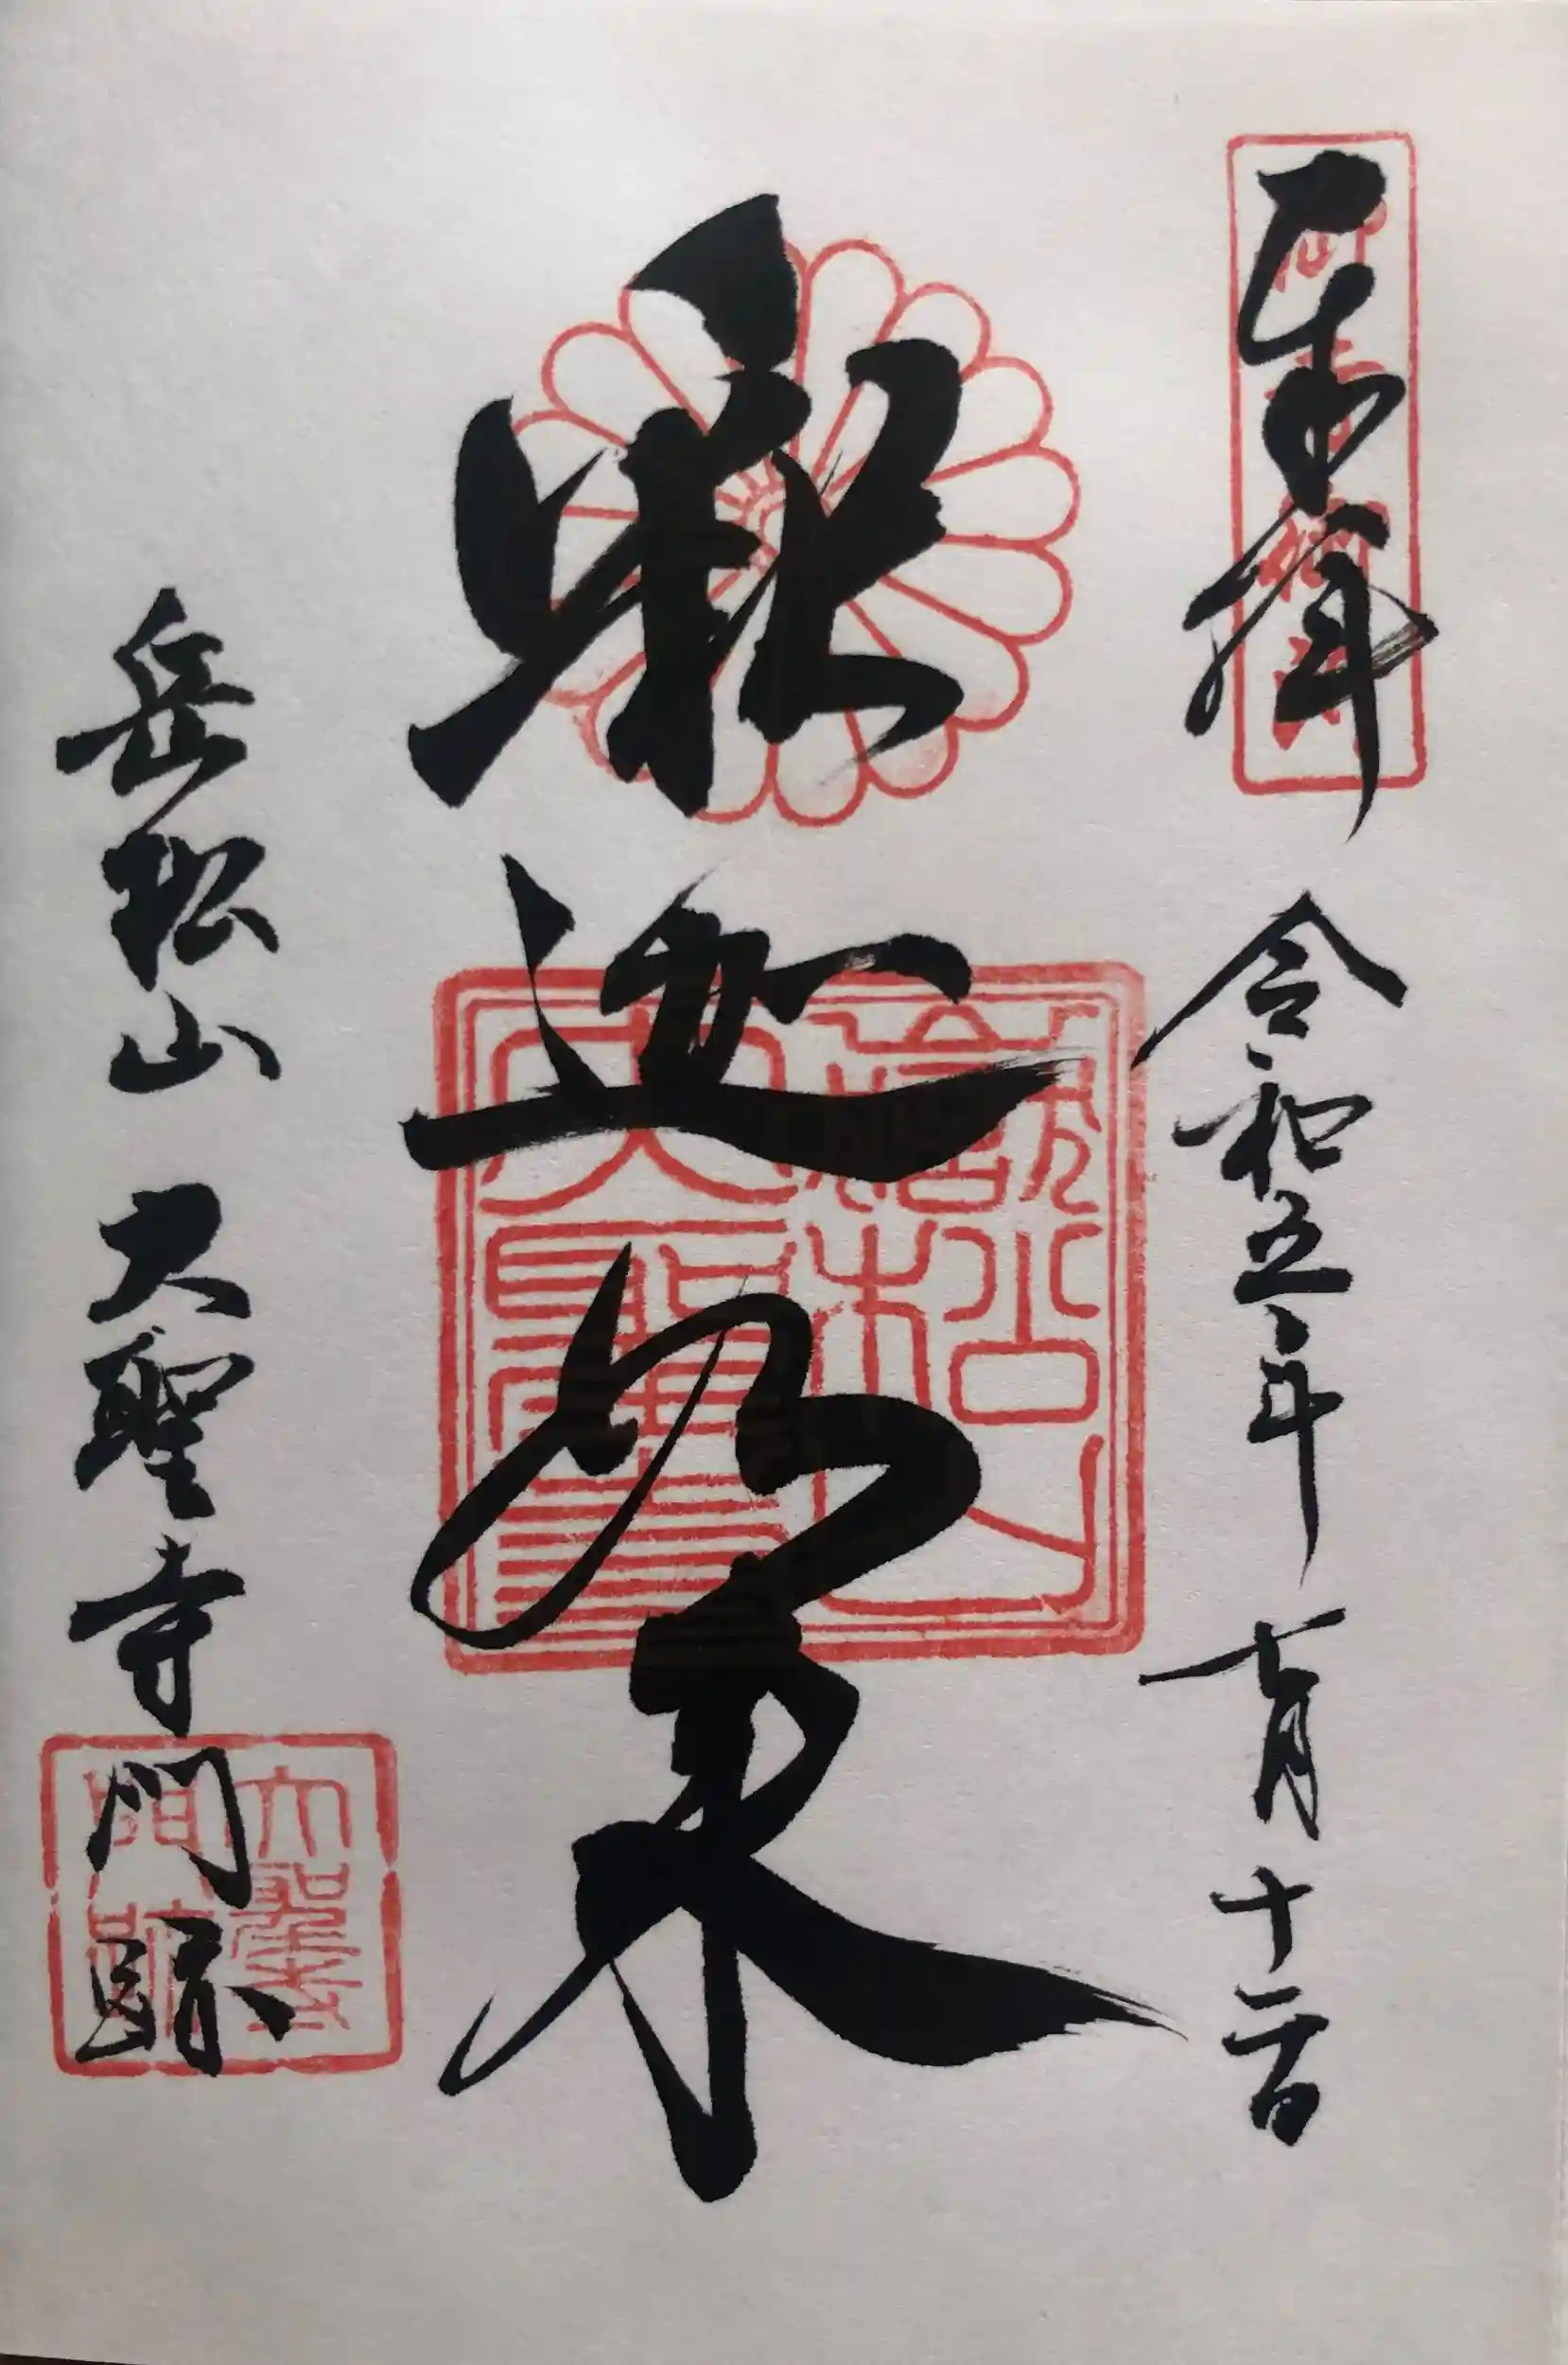 奉拝 令和五年十一月十二日
釈迦如来
岳松山 大聖寺門跡
嶽松山
大聖寺
大聖寺
門跡